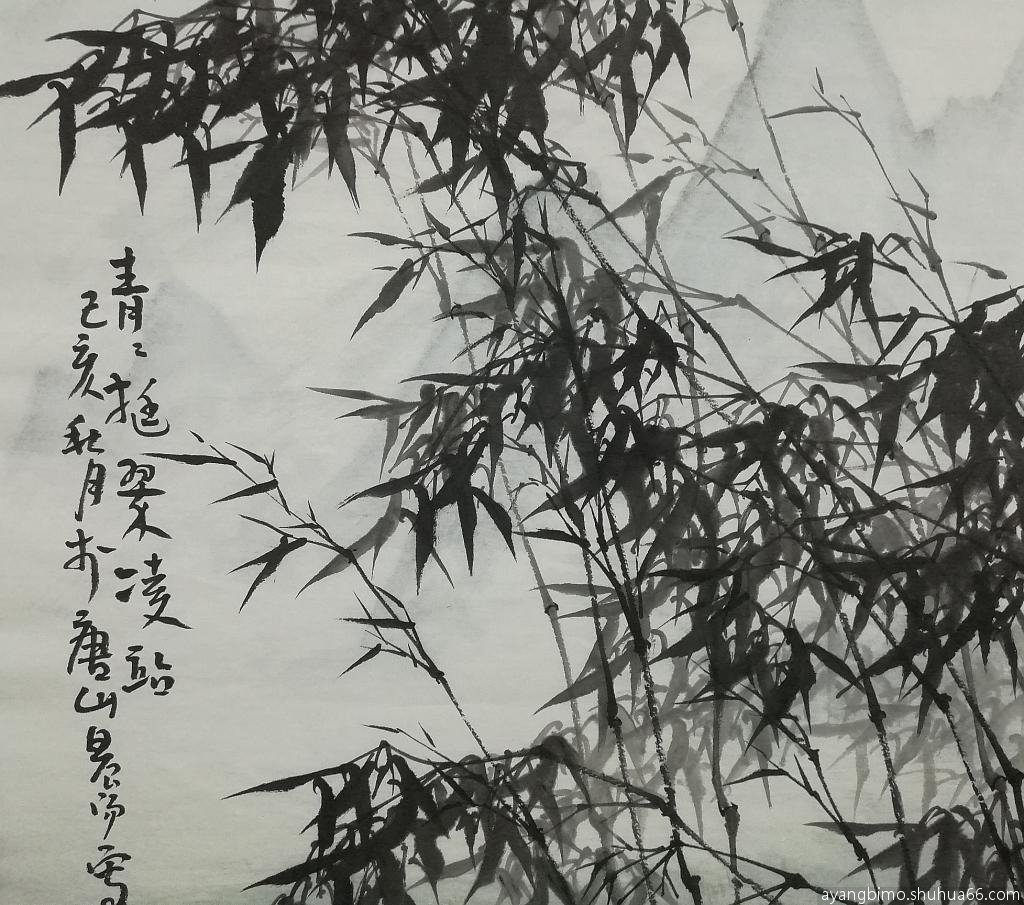 青〻挺翠凌站
己亥秋月於唐山晨阳写
ayangbimo.shuhua66.com